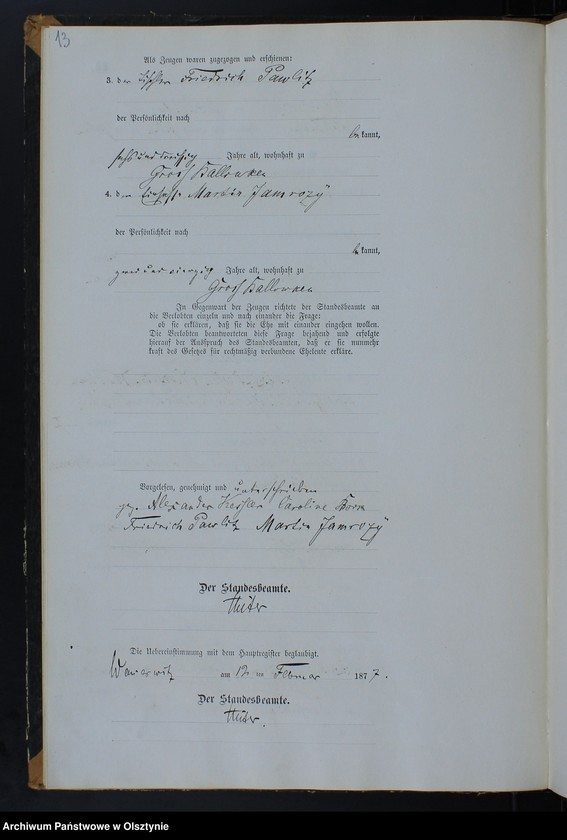 13
Als Zeugen waren zugezogen und erschienen:
3. der Tischler Friedrich Pawlitz
der Persönlichkeit nach
bekannt,
sechs und dreißig Jahre alt, wohnhaft zu
Gross Ballowken
4. der Martin Jamrozÿ
der Persönlichkeit nach
bekannt,
zwei und vierzig Jahre alt, wohnhaft zu
Gross Ballowken
In Gegenwart der Zeugen richtete der Standesbeamte an
die Verlobten einzeln und nach einander die Frage:
ob sie erklären, daß sie die Ehe mit einander eingehen wollen.
Die Verlobten beantworteten diese Frage bejahend und erfolgte
hierauf der Ausspruch des Standesbeamten, daß er sie nunmehr
kraft des Gesetzes für rechtmäßig verbundene Eheleute erkläre.
Vorgelesen, genehmigt und unterschrieben
gez. Alexander Caroline
Friedrich Pawlitz Martin Jamrozÿ
Der Standesbeamte.
Die Uebereinstimmung mit dem Hauptregister beglaubigt.
am 12 ten Februar 1877.
Der Standesbeamte.
Archiwum Państwowe w Olsztynie